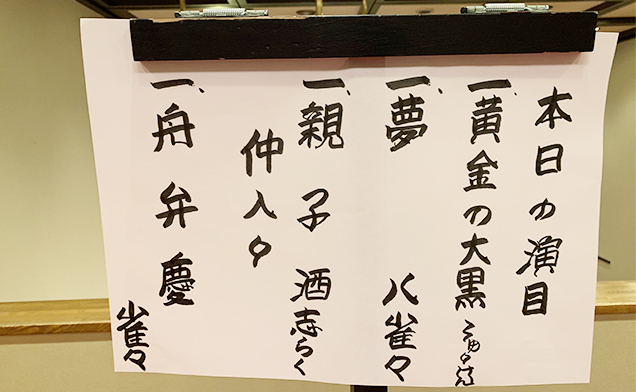 本日の演目
一、黄金の大黒
一、夢八 雀々
一、親子酒 志らく
仲入り
一、舟弁慶 雀々